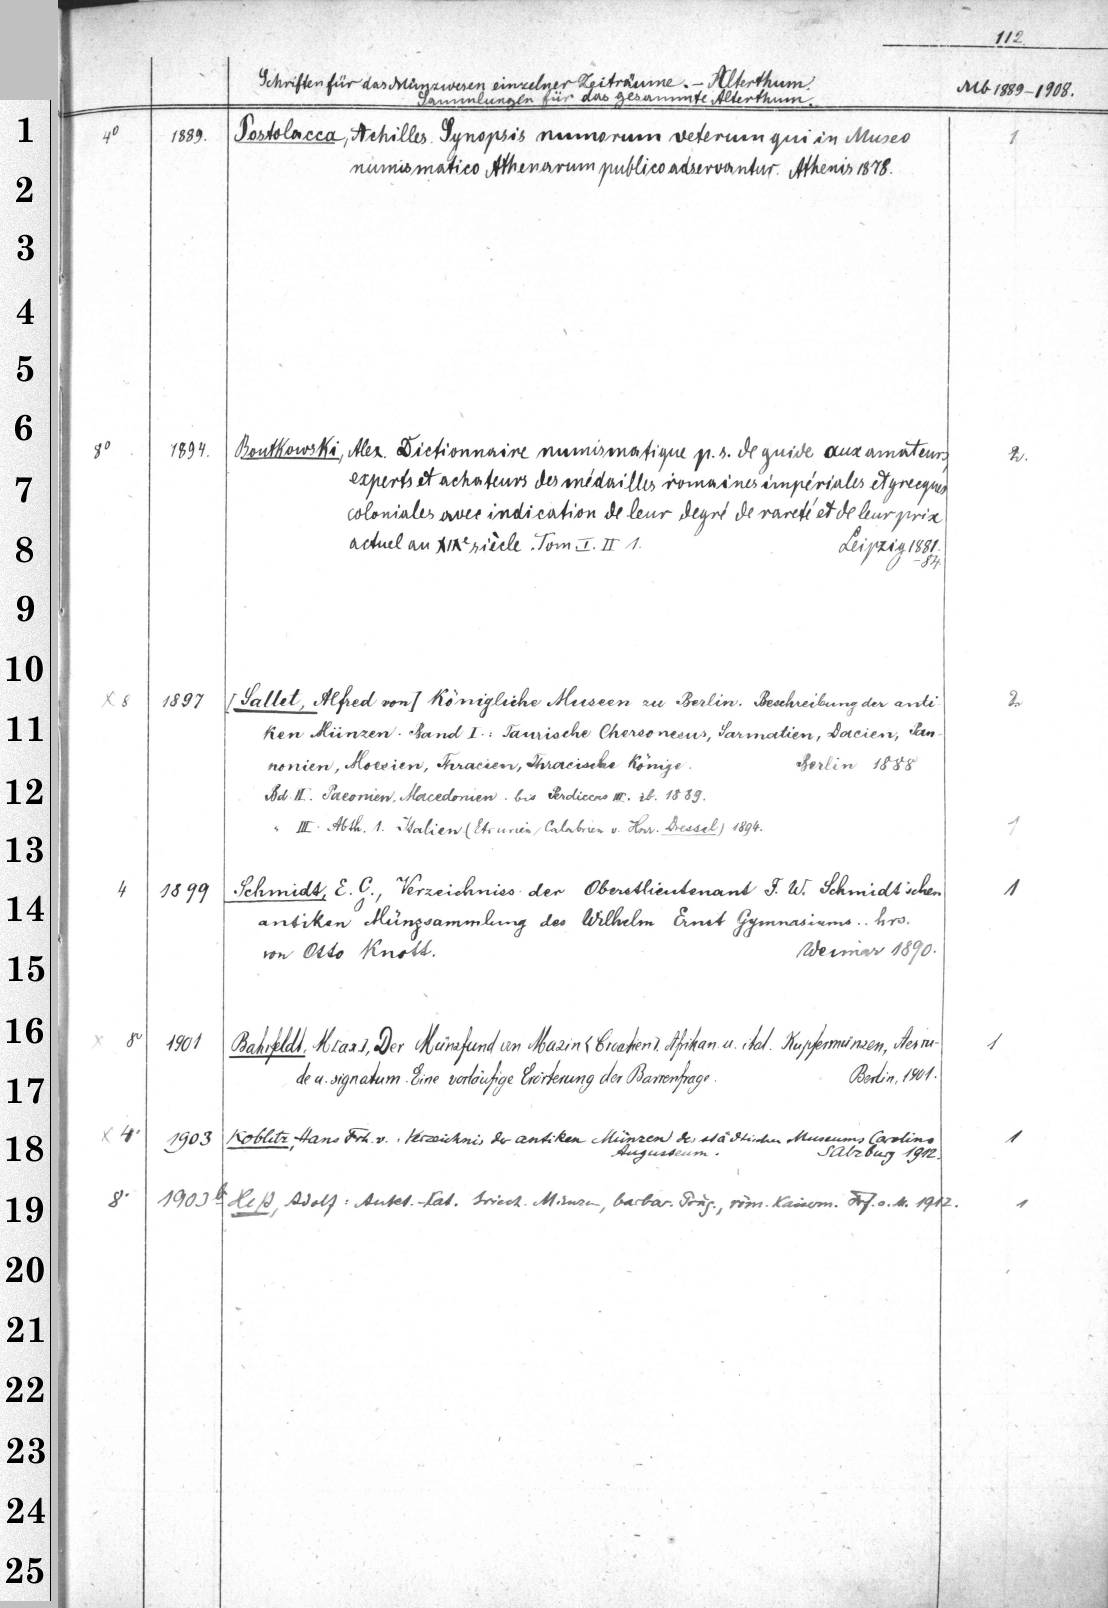 112
Schriften für das Münzwesen einzelner Zeiträume. – Alterthum.
Sammlungen für das gesammte Alterthum.
Mb 1889–1908.
1
4° 1889. Postolacca, Achilles. Synopsis numorum veterum qui in Museo 1
numismatico Athenarum publico adservantur. Athenis 1878.
2
3
4
5
6
8° 1894. Boutkowski, Alex. Dictionnaire numismatique p. s. de guide aux amateurs, 2.
7
experts et achateurs des médailles romaines impériales et grecques
coloniales avec indication de leur degré de rareté et de leur prix
8
actuel au XIXe siècle. Tom I. II 1. Leipzig 1881.
–84.
9
10
x 8 1897 [Sallet, Alfred von] Königliche Museen zu Berlin. Beschreibung der anti- 2
11
ken Münzen. Band I.: Taurische Chersonesus, Sarmatien, Dacien, Pan-
nonien, Moesien, Thracien, Thracische Könige. Berlin 1888
12
Bd. II. Paeonien, Macedonien. bis Perdiccas III. ib. 1889.
" III. Abth. 1. Italien (Etrurien, Calabrien v. Hrn. Dressel) 1894. 1
13
14
4 1899 Schmidt, E. G., Verzeichniss der Oberstlieutenant F. W. Schmidt'schen 1
antiken Münzsammlung des Wilhelm Ernst Gymnasiums.. hrs.
von Otto Knott. Weimar 1890.
15
16
x 8° 1901 Bahrfeldt, M[ax], Der Münzfund von Mazin (Croatien). Afrikan. u. ital. Kupfermünzen, Aes ru- 1
17
de u. signatum. Eine vorläufige Erörterung der Barrenfrage. Berlin, 1901.
18
x 4° 1903 Koblitz, Hans Frh. v.: Verzeichnis der antiken Münzen des städtischen Museums Carolino 1
Augusteum. Salzburg 1912.
19
8° 1903b Heß, Adolf: Aukt.-Kat. Griech. Münzen, barbar. Präg., röm. Kaiserm. Frf. a. M. 1912. 1
20
21
22
23
24
25